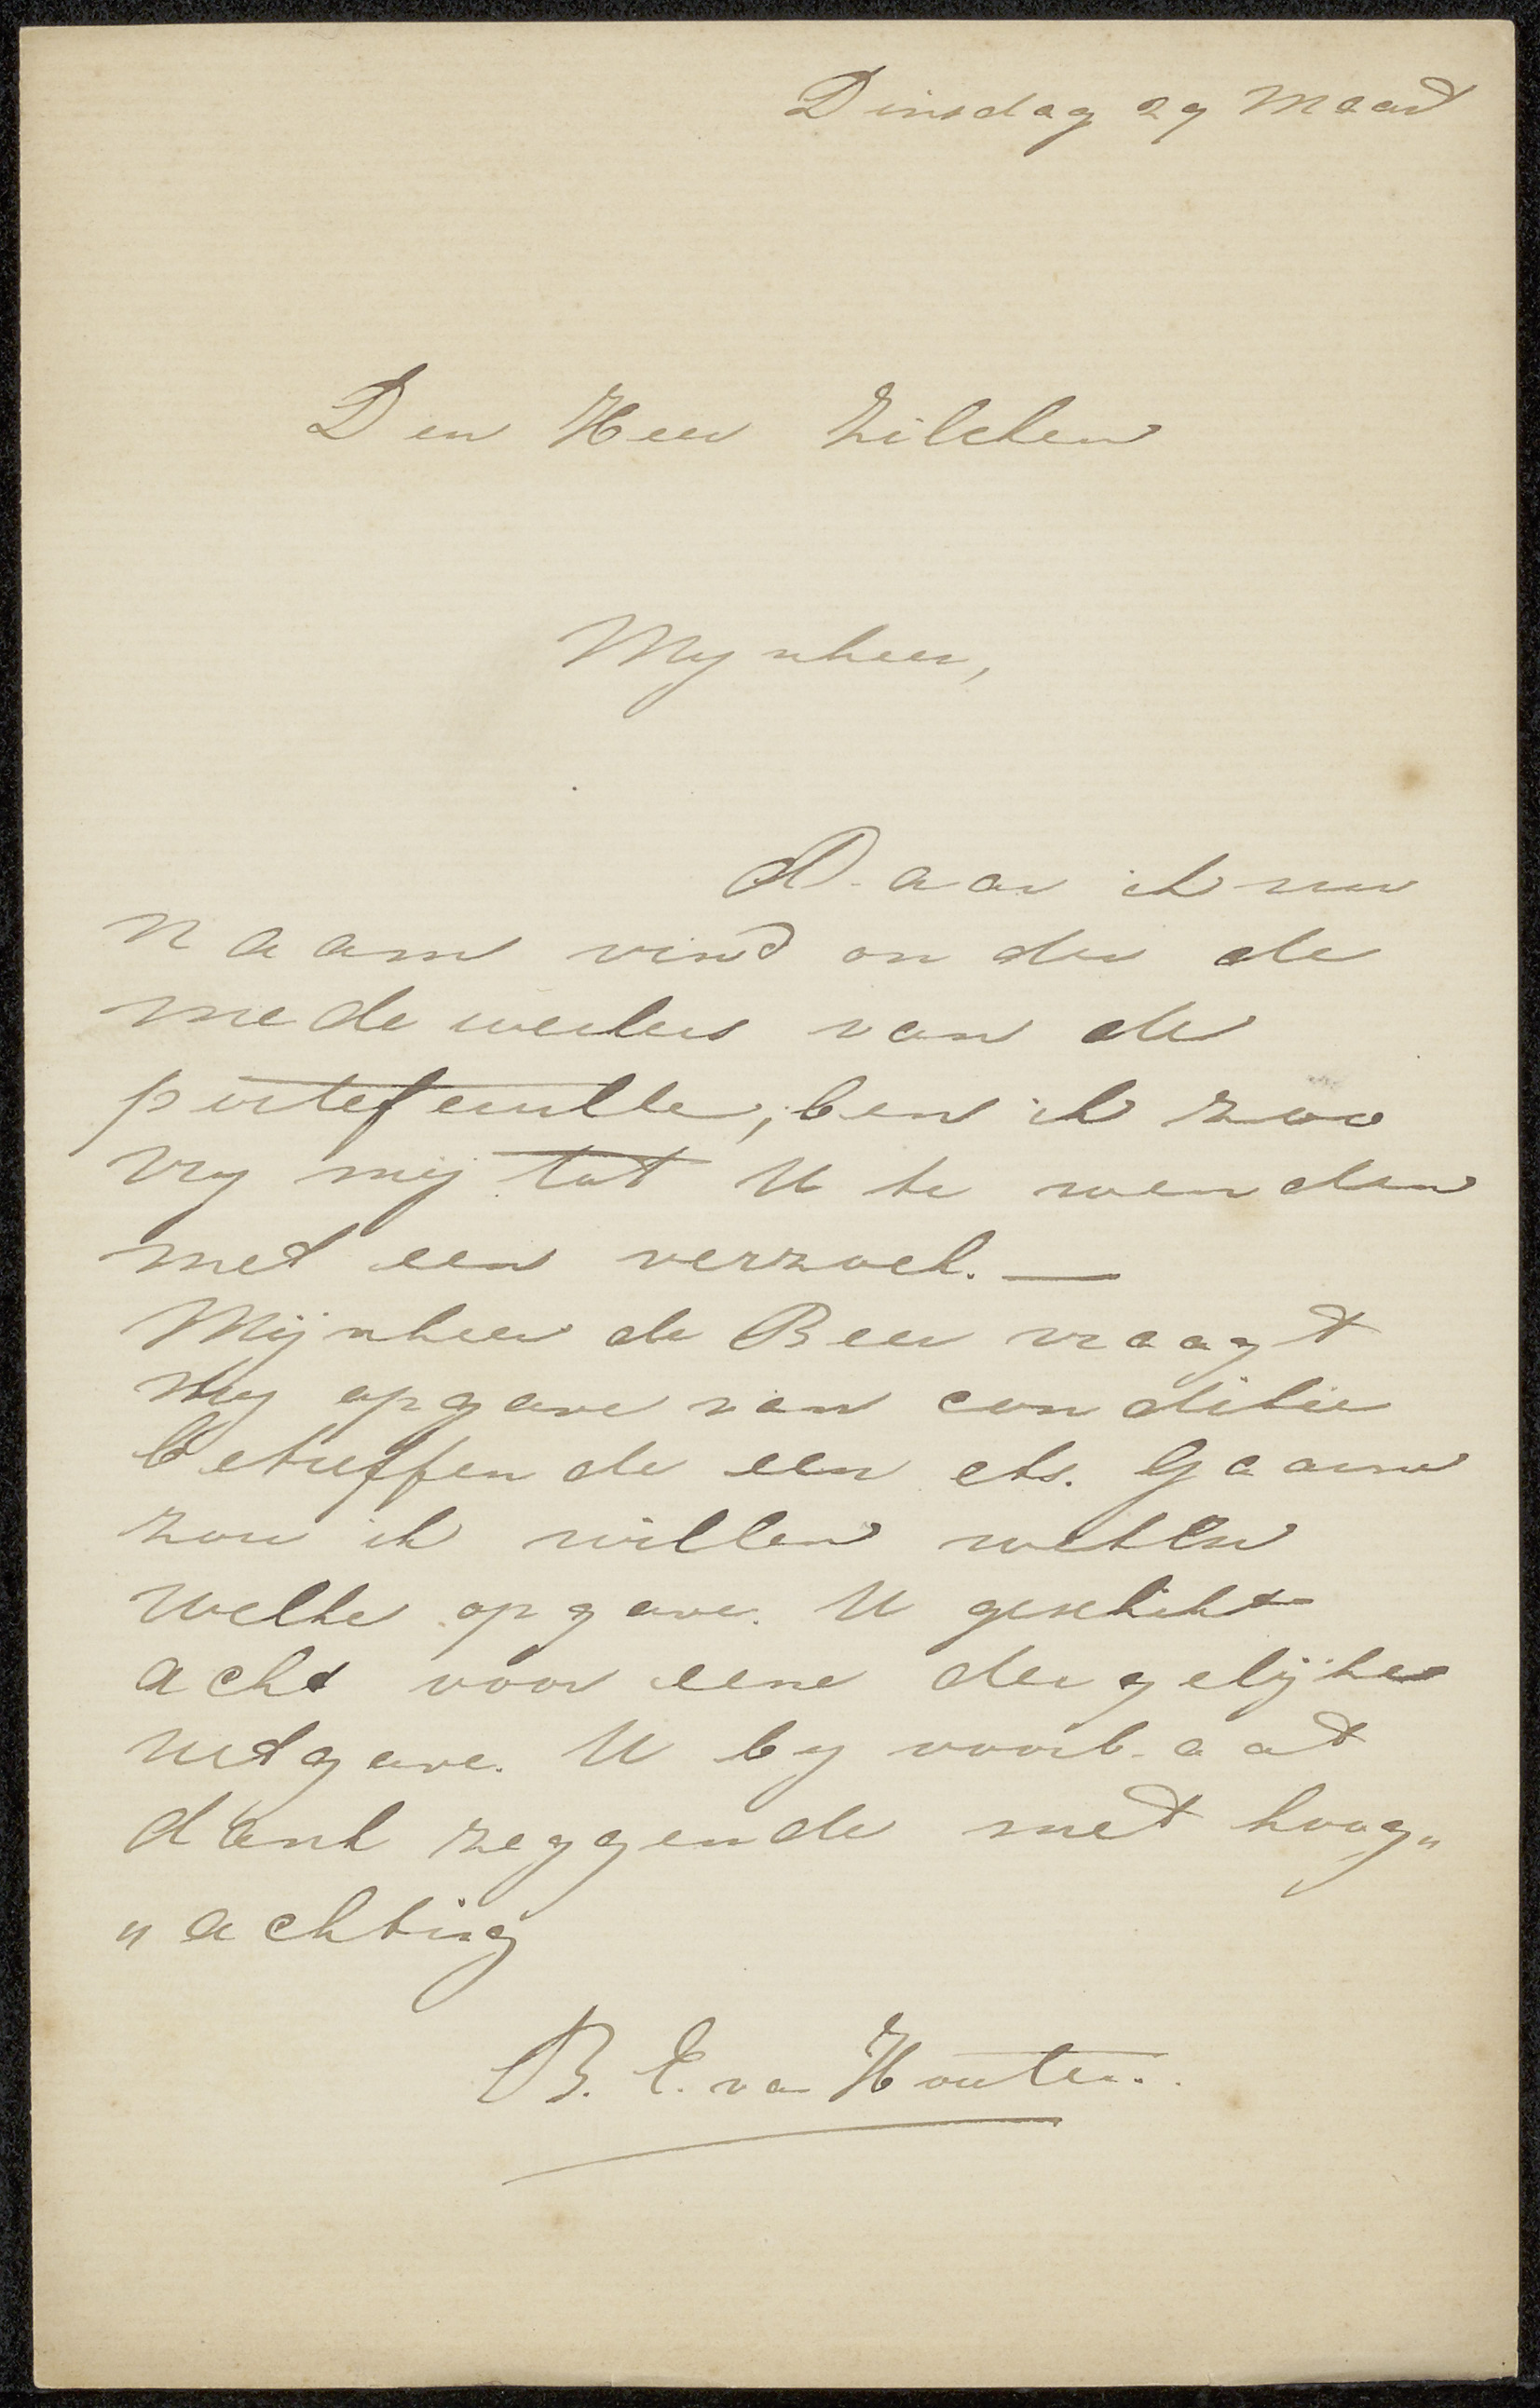 Dinsdag 29 Maart
Den Heer Zilcken
Mynheer,
Daar ik uw
naam vind onder de
medewerkers van de
portefeuille, ben ik zoo
vry mij tot U te wenden
met een verzoek. —
Mijnheer de Beer vraagt
my opgave van conditie
betreffende een ets. Gaarne
zou ik willen weten
welke opgave. U geschikt
acht voor eene dergelijke
uitgave. U by voorbaat
dank zeggende met hoog„
„achting
B. E. van Houten.